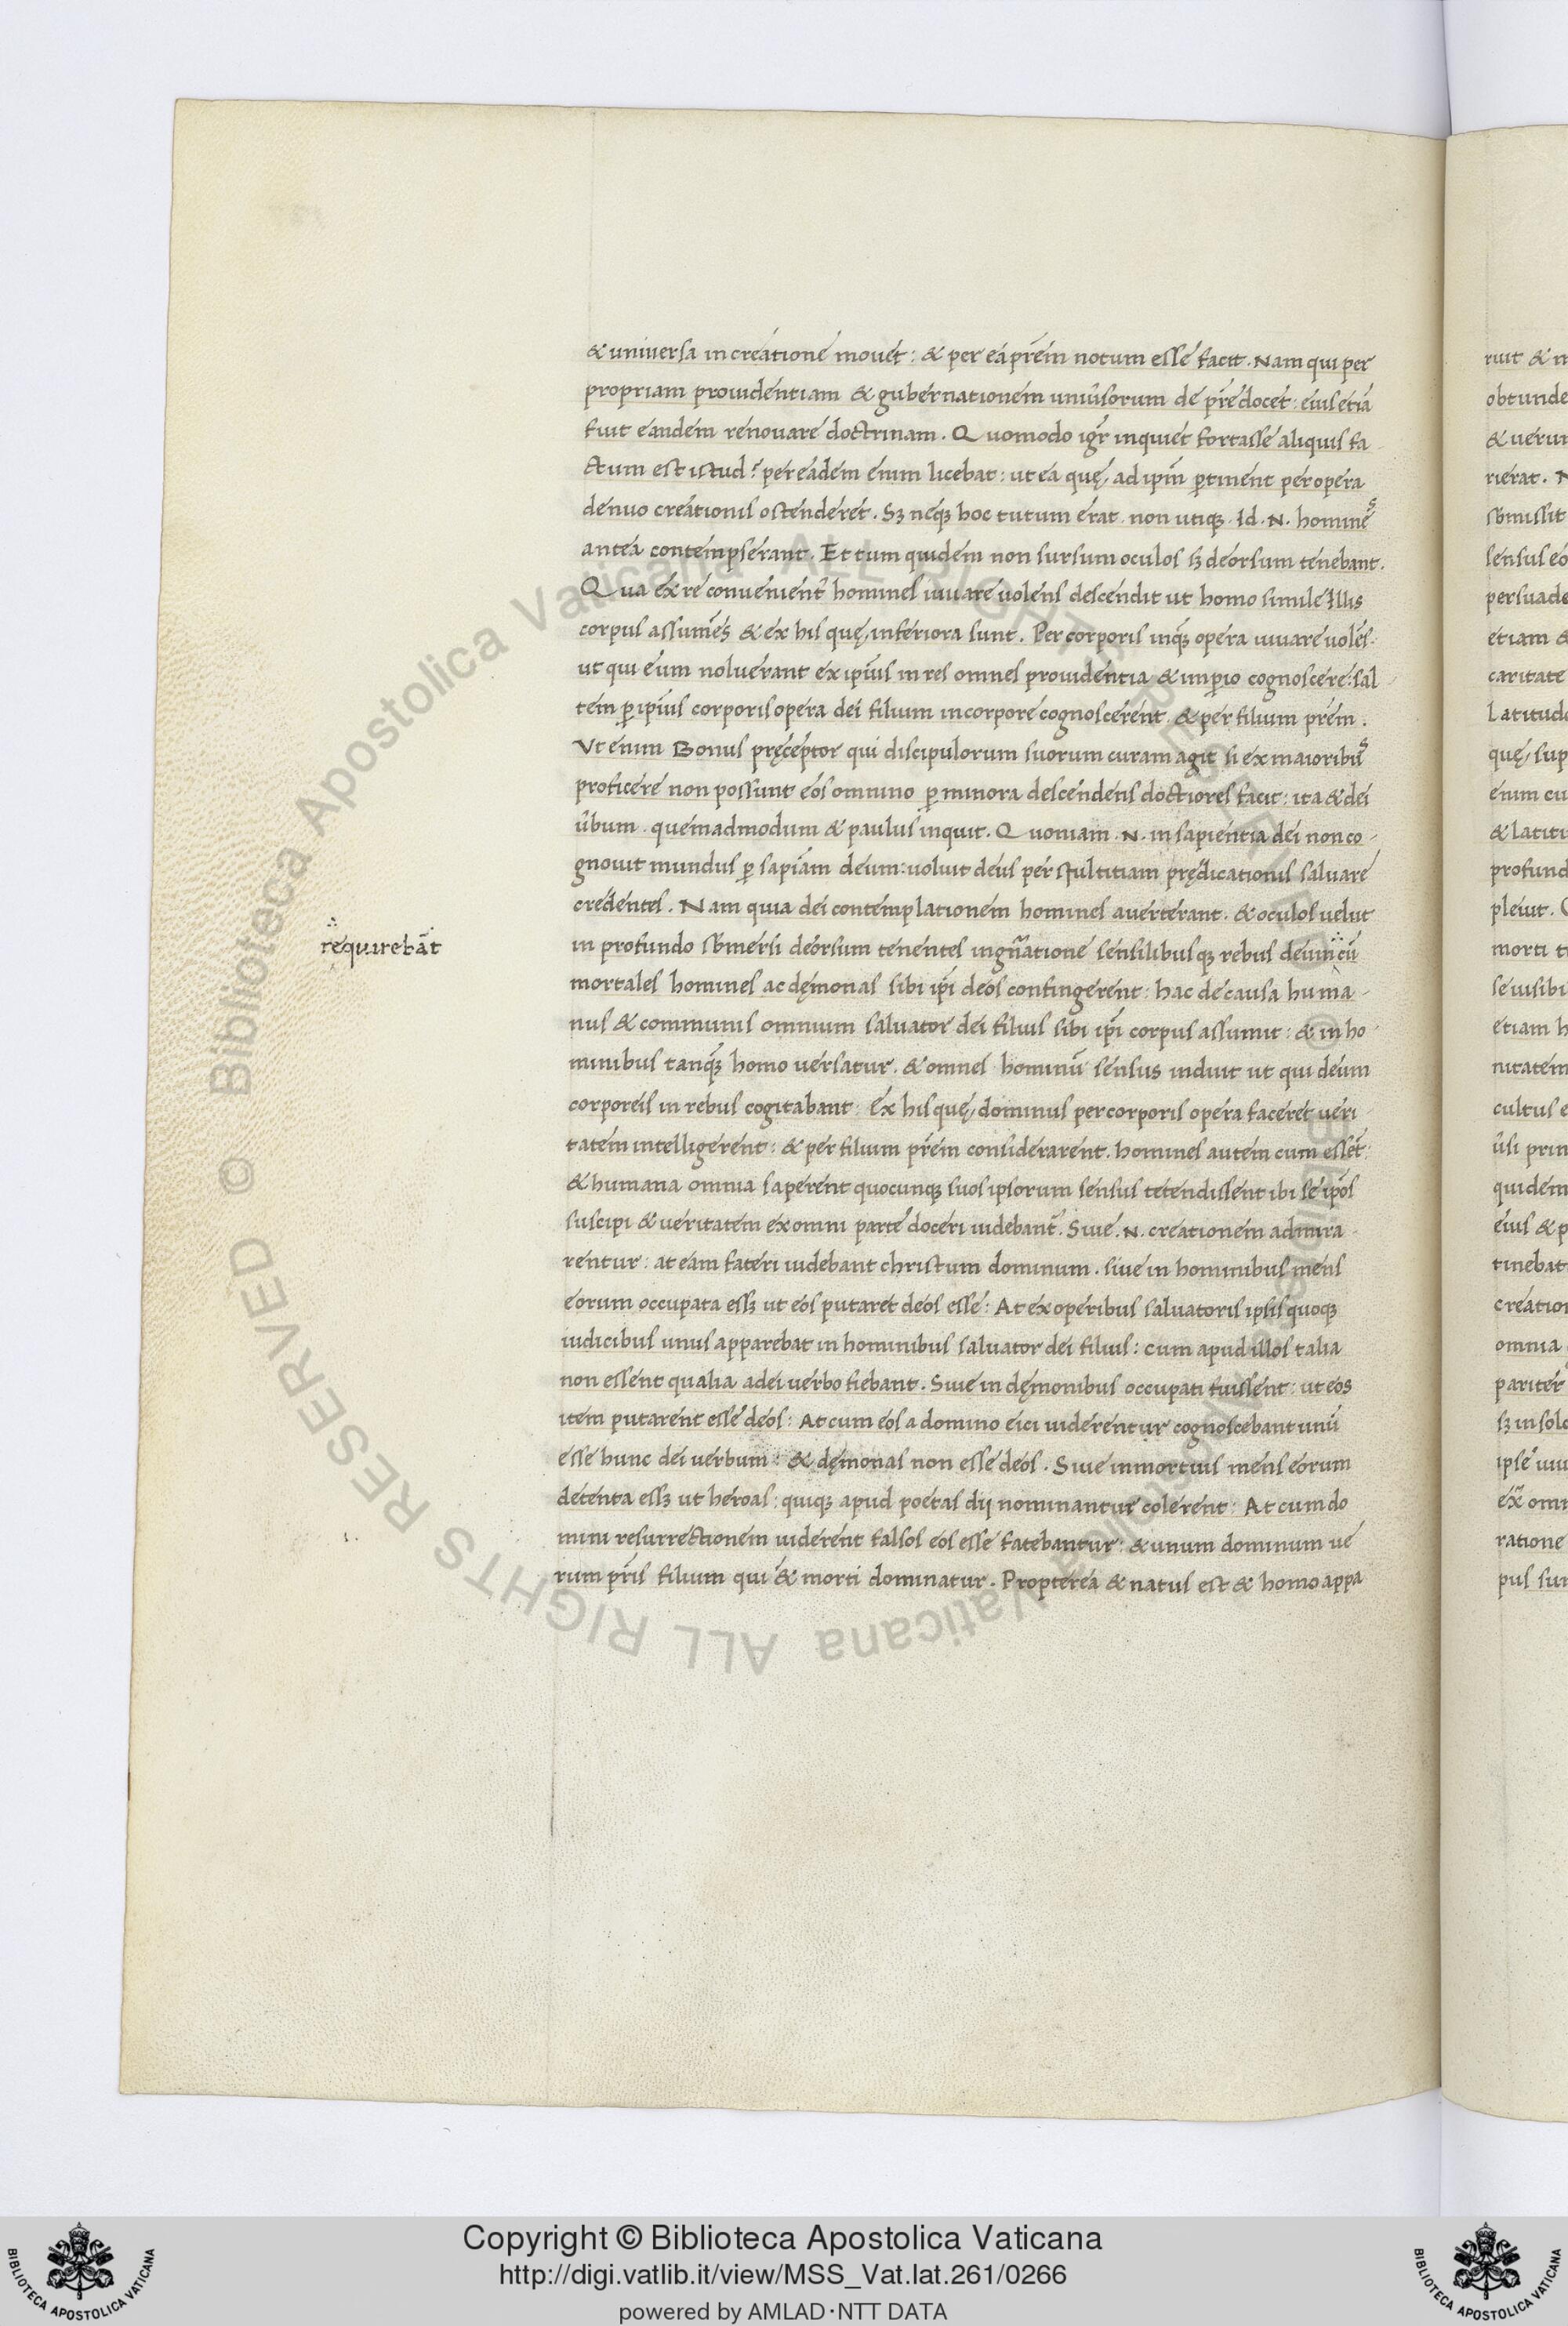 & universa in creatione mouet: & per ea prēm notum esse facit. Nam qui per
propriam prouidentiam & gubernationem uniūsorum de prē docet: eius etiā
fuit eandem renouare doctrinam. Quomodo igr̄ inquiet fortasse aliquis fa
ctum est istud? per eadem enim licebat: ut ea quę ad ipm̄ ꝑtinent per opera
denuo creationis ostenderet. Sꝫ neqꝫ hoc tutum erat. non utiqꝫ. Id .N. homines
antea contempserant. Et tum quidem non sursum oculos sꝫ deorsum tenebant.
Qua ex re conuenienť homines iuuare uolens descendit ut homo simile illis
corpus assumēs & ex his quę inferiora sunt. Per corporis inqꝫ opera iuuare uolēs.
ut qui eum noluerant ex ipīus in res omnes prouidentia & imꝑio cognoscere: sal
tem ꝑ ipīus corporis opera dei filium in corpore cognoscerent. & per filium prēm.
Vt enim Bonus pręceptor qui discipulorum suorum curam agit si ex maioribus
proficere non possunt eos omnino ꝑ minora descendens doctiores facit: ita & dei
ūbum. quemadmodum & paulus inquit. Quoniam .N. in sapientia dei non co-
gnouit mundus ꝑ sapiām deum: uoluit deus per stultitiam prędicationis saluare
credentes. Nam quia dei contemplationem homines auerterant. & oculos uelut
requirebāt
in profundo sb̄mersi deorsum tenentes in gn̄atione sensilibusqꝫ rebus deum cū
mortales homines ac dęmonas sibi ipī deos confingerent: hac de causa huma-
nus & communis omnium saluator dei filius sibi ipī corpus assumit: & in ho-
minibus tanqꝫ homo uersatur. & omnes hominū sensus induit ut qui deum
corporeis in rebus cogitabant: Ex his quę dominus per corporis opera faceret ueri
tatem intelligerent: & per filium prēm considerarent. homines autem cum essēt:
& humana omnia saperent quocunqꝫ suos ipsorum sensus tetendissent ibi se ipōs
suscipi & ueritatem ex omni parte doceri uidebant̄. Siue .N. creationem admira-
rentur: at eam fateri uidebant christum dominum. siue in hominibus mens
eorum occupata essꝫ ut eos putaret deos esse: At ex operibus saluatoris ipsis quoqꝫ
iudicibus unus apparebat in hominibus saluator dei filius: cum apud illos talia
non essent qualia a dei uerbo fiebant. Siue in dęmonibus occupati fuissent: ut eos
item putarent esse deos: At cum eos a domino eici uiderentur cognoscebant unū
esse hunc dei uerbum: & dęmonas non esse deos. Siue in mortuis mens eorum
detenta essꝫ ut heroas: quiqꝫ apud poetas dij nominantur colerent: At cum do
mini resurrectionem uiderent falsos eos esse fatebantur: & unum dominum ue
rum prīs filium qui & morti dominatur. Propterea & natus est & homo appa
Copyright © Biblioteca Apostolica Vaticana
http://digi.vatlib.it/view/MSS_Vat.lat.261/0266
powered by AMLAD·NTT DATA